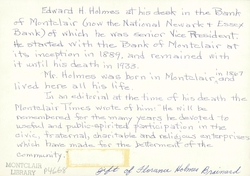 Edward H Holmes at his desk in the Bank
of Montclair (now the National Newark & Essex
Bank) of which he was senior Vice President.
He started with the Bank of Montclair at
its inception in 1889, and remained with
it until his death in 1933.
Mr. Holmes was born in Montclair, in 1867
and lived here all his life.
In an editorial at the time of his death the
Montclair Times wrote of him "He will be
remembered for the many years he devoted to
useful and public-spirited participation in the
civic, fraternal, charitable and religious enterprises
which have made for the betterment of the
community.
MONTCLAIR
LIBRARY
Gift of Florence Holmes